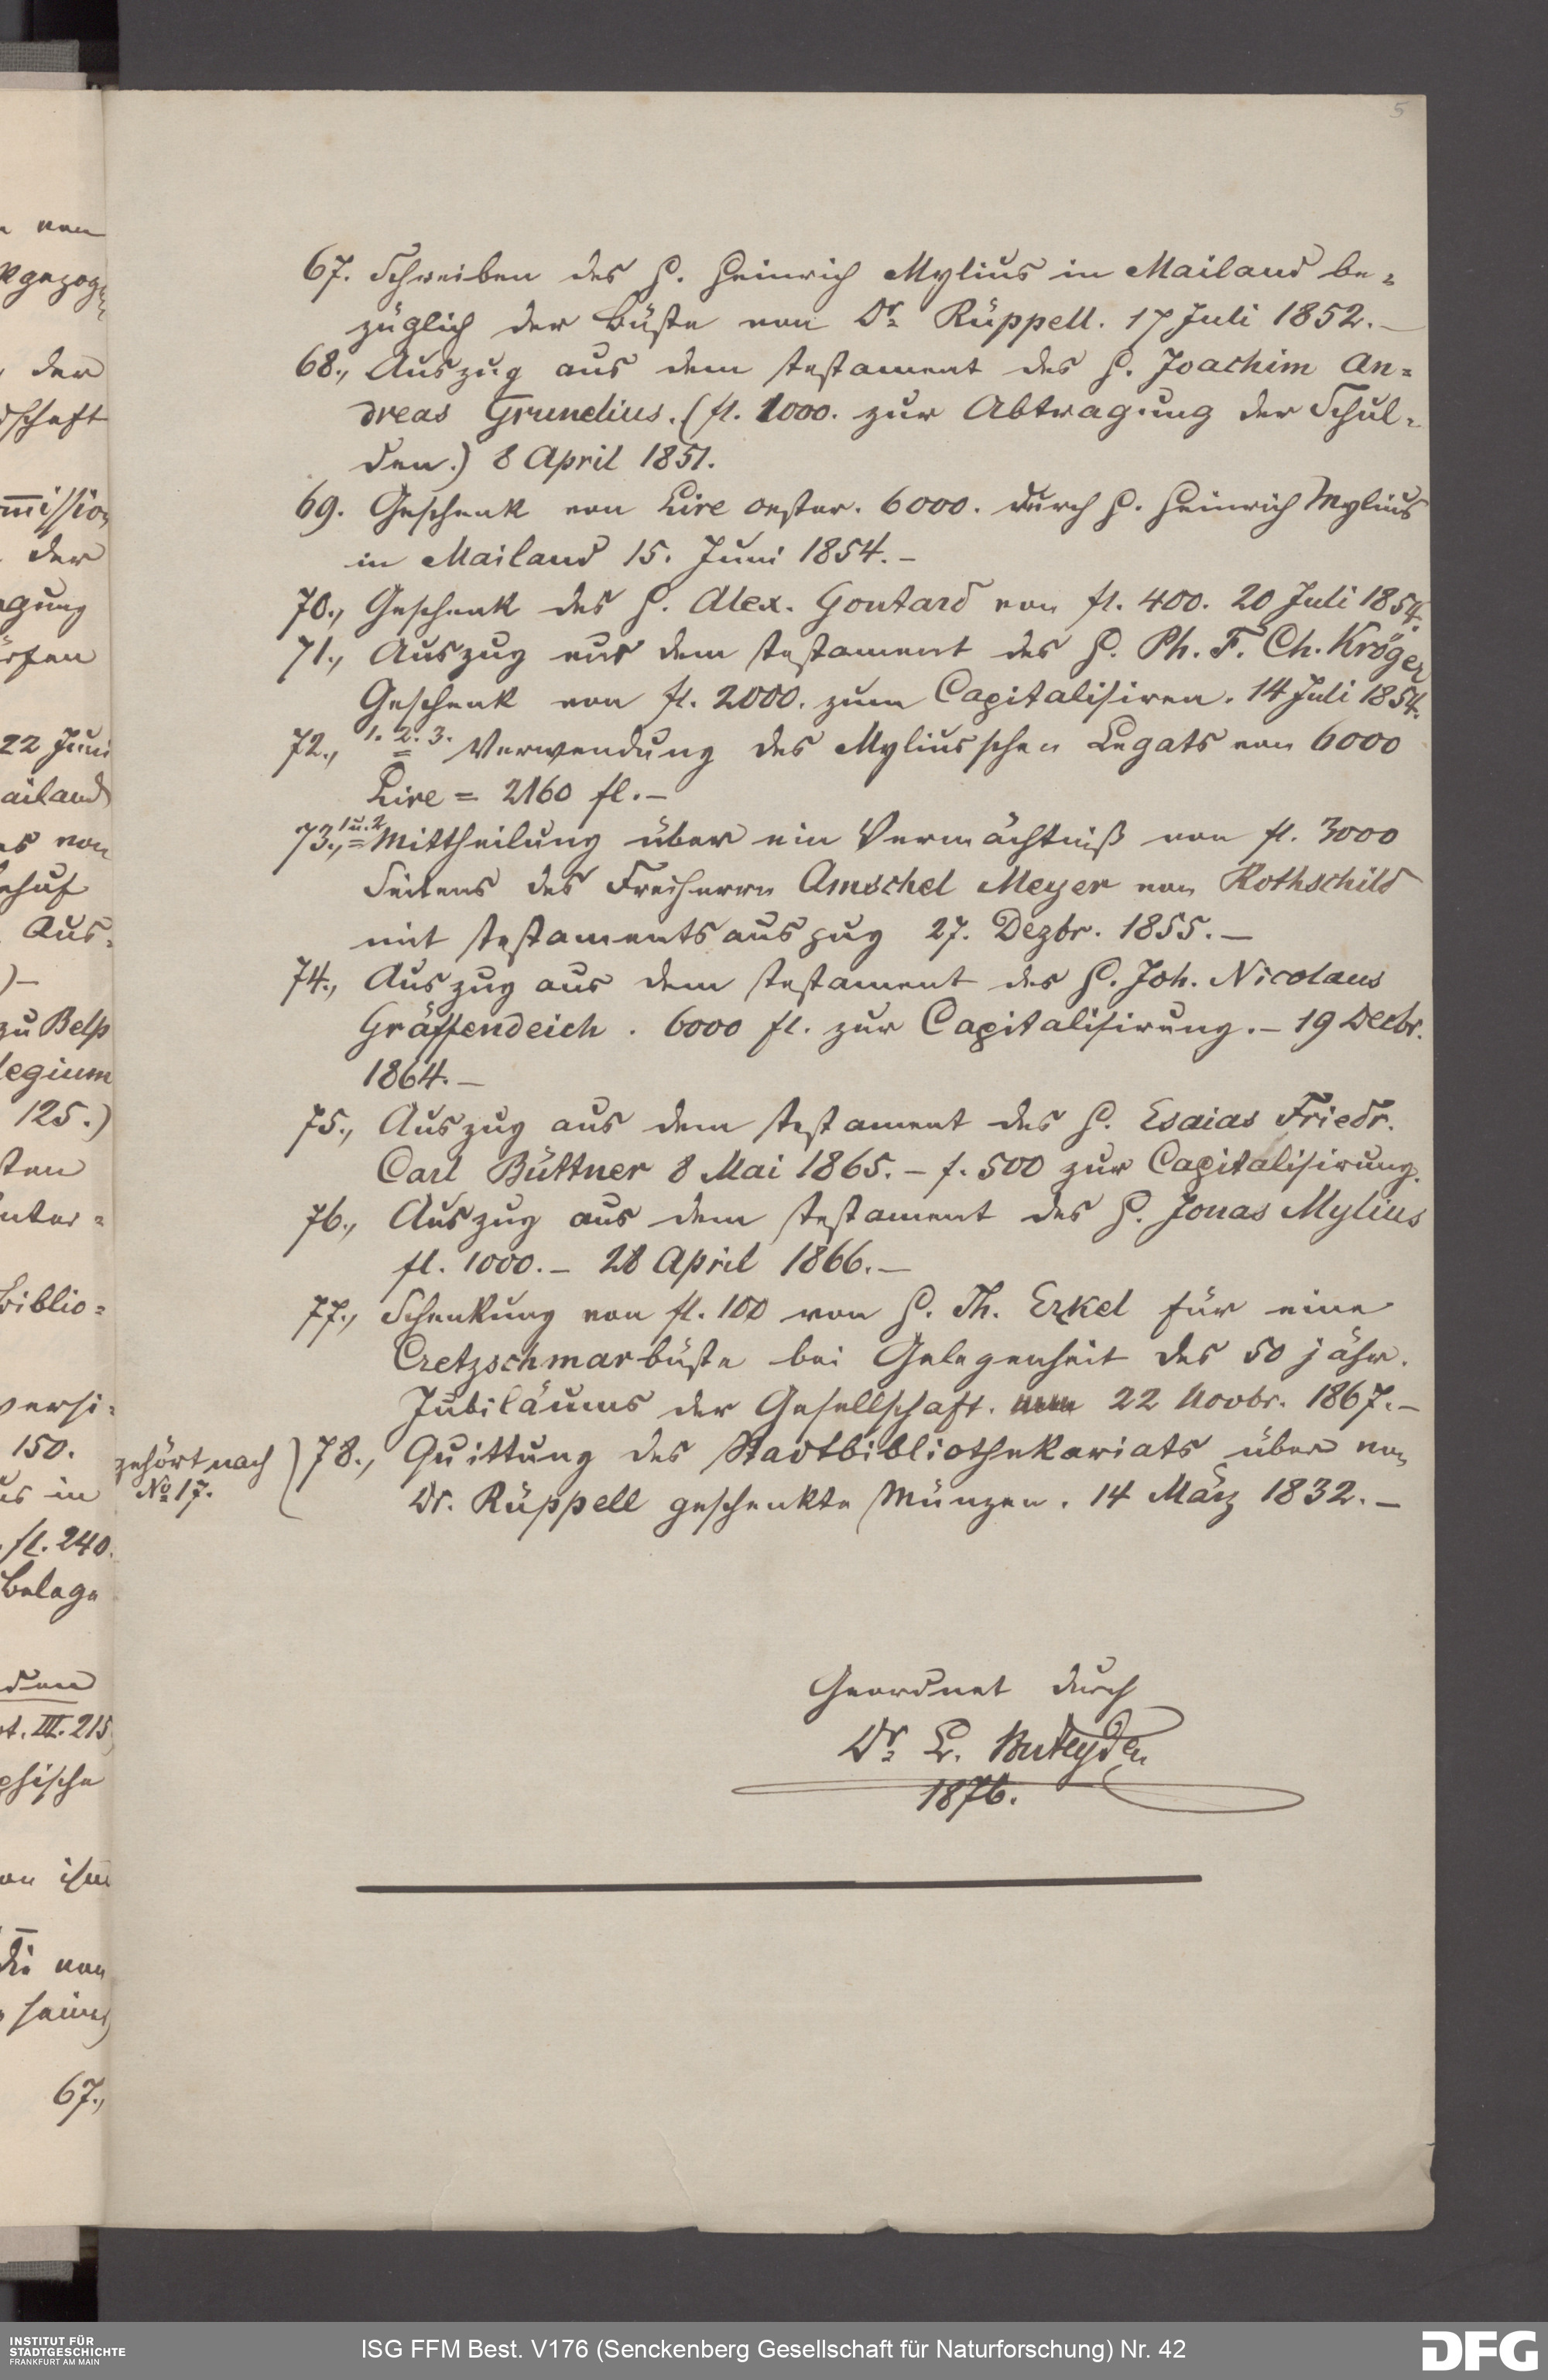 5
67. Schreiben des H. Heinrich Mylius in Mailand be-
züglich der Büste von Dr. Rüppell. 17 Juli 1852.—
68., Auszug aus dem Testament des H. Joachim An-
dreas Grunelius. (fl. 1000. zur Abtragung der Schul-
den.) 8 April 1851.
69. Geschenk von Lire oester. 6000. durch H. Heinrich Mylius
in Mailand 15. Juni 1854.—
70., Geschenk des H. Alex. Gontard von fl. 400. 20 Juli 1854.
71., Auszug aus dem Testament des H. Ph. F. Ch. Kröger
Geschenk von fl. 2000. zum Capitalisiren. 14 Juli 1854.
72., 1. 2. 3. Verwendung des Mylius'schen Legats von 6000
Lire = 2160 fl.—
73., 1 u. 2 Mittheilung über ein Vermächtniß von fl. 3000
Seitens des Freiherrn Amschel Meyer von Rothschild
mit Testamentsauszug 27. Dezbr. 1855.—
74., Auszug aus dem Testament des H. Joh. Nicolaus
Gräffendeich. 6000 fl. zur Capitalisirung.— 19 Decbr.
1864.—
75., Auszug aus dem Testament des H. Esaias Friedr.
Carl Büttner 8 Mai 1865.— f. 500 zur Capitalisirung.
76., Auszug aus dem Testament des H. Jonas Mylius
fl. 1000.— 28 April 1866.—
77., Schenkung von fl. 100 von H. Th. Erkel für eine
Cretzschmarbüste bei Gelegenheit des 50 jähr.
Jubiläums der Gesellschaft. 22 Novbr. 1867.—
gehört nach No 17. ) 78., Quittung des Stadtbibliothekariats über von
Dr. Rüppell geschenkte Münzen. 14 März 1832.—
Geordnet durch
Dr. L.
1876.
INSTITUT FÜR
STADTGESCHICHTE
FRANKFURT AM MAIN
ISG FFM Best. V176 (Senckenberg Gesellschaft für Naturforschung) Nr. 42
DFG